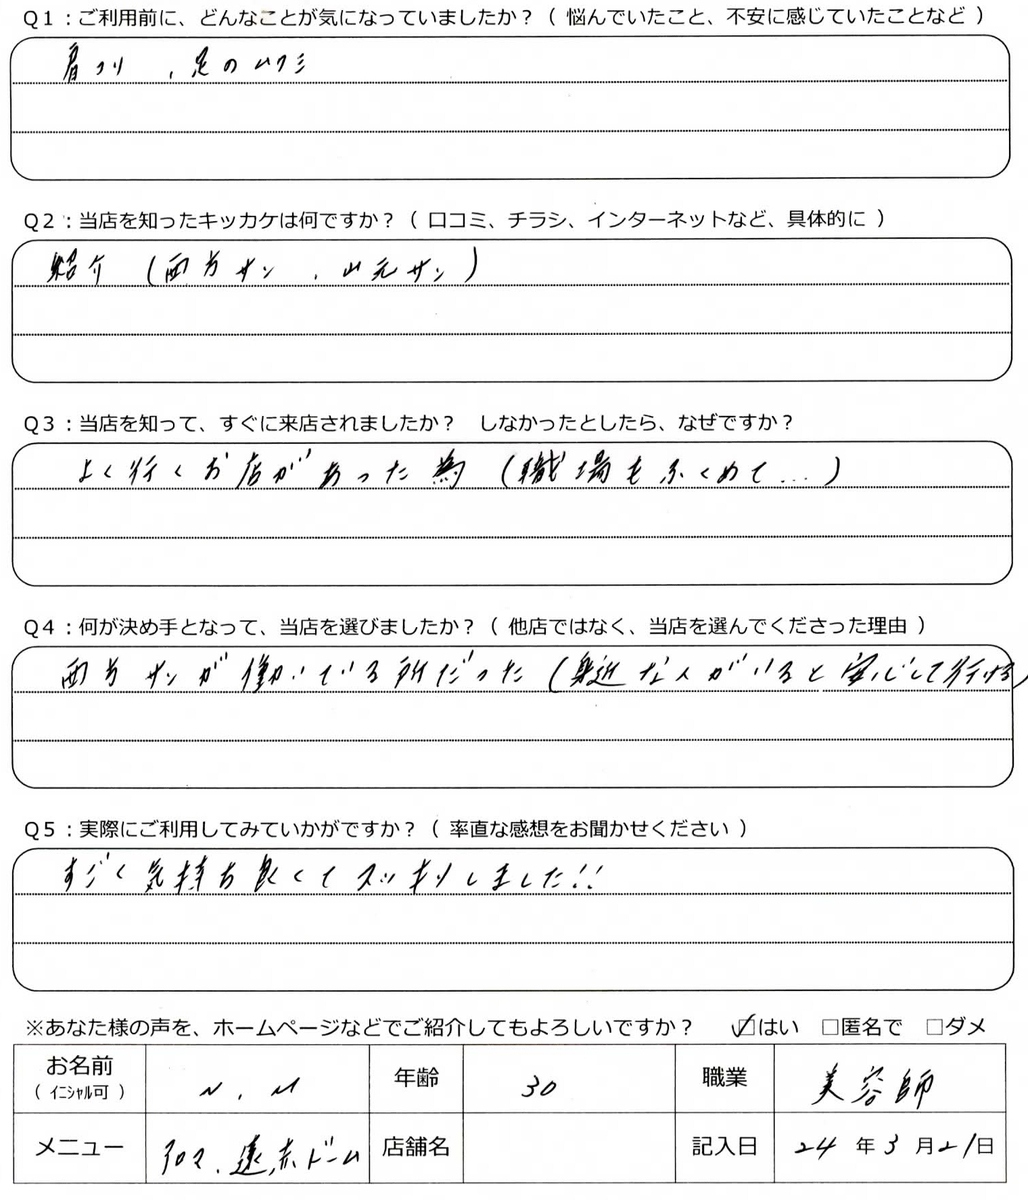 Q1：ご利用前に、どんなことが気になっていましたか？（ 悩んでいたこと、不安に感じていたことなど ）
肩コリ 、足のムクミ
Q2：当店を知ったキッカケは何ですか？（ 口コミ、チラシ、インターネットなど、具体的に ）
紹介 (西方サン 、山元サン)
Q3：当店を知って、すぐに来店されましたか？ しなかったとしたら、なぜですか？
よく行くお店があった為 (職場もふくめて...)
Q4：何が決め手となって、当店を選びましたか？（ 他店ではなく、当店を選んでくださった理由 ）
西方サンが働いている所だった (身近な人がいると安心して行ける)
Q5：実際にご利用してみていかがですか？（ 率直な感想をお聞かせください ）
すごく気持ち良くてスッキリしました!!
※あなた様の声を、ホームページなどでご紹介してもよろしいですか？ ☑はい □匿名で □ダメ
お名前 N.M 年齢 30 職業 美容師
（ イニシャル可 ）
メニュー アロマ、遠赤ドーム 店舗名 記入日 24 年 3 月 21日